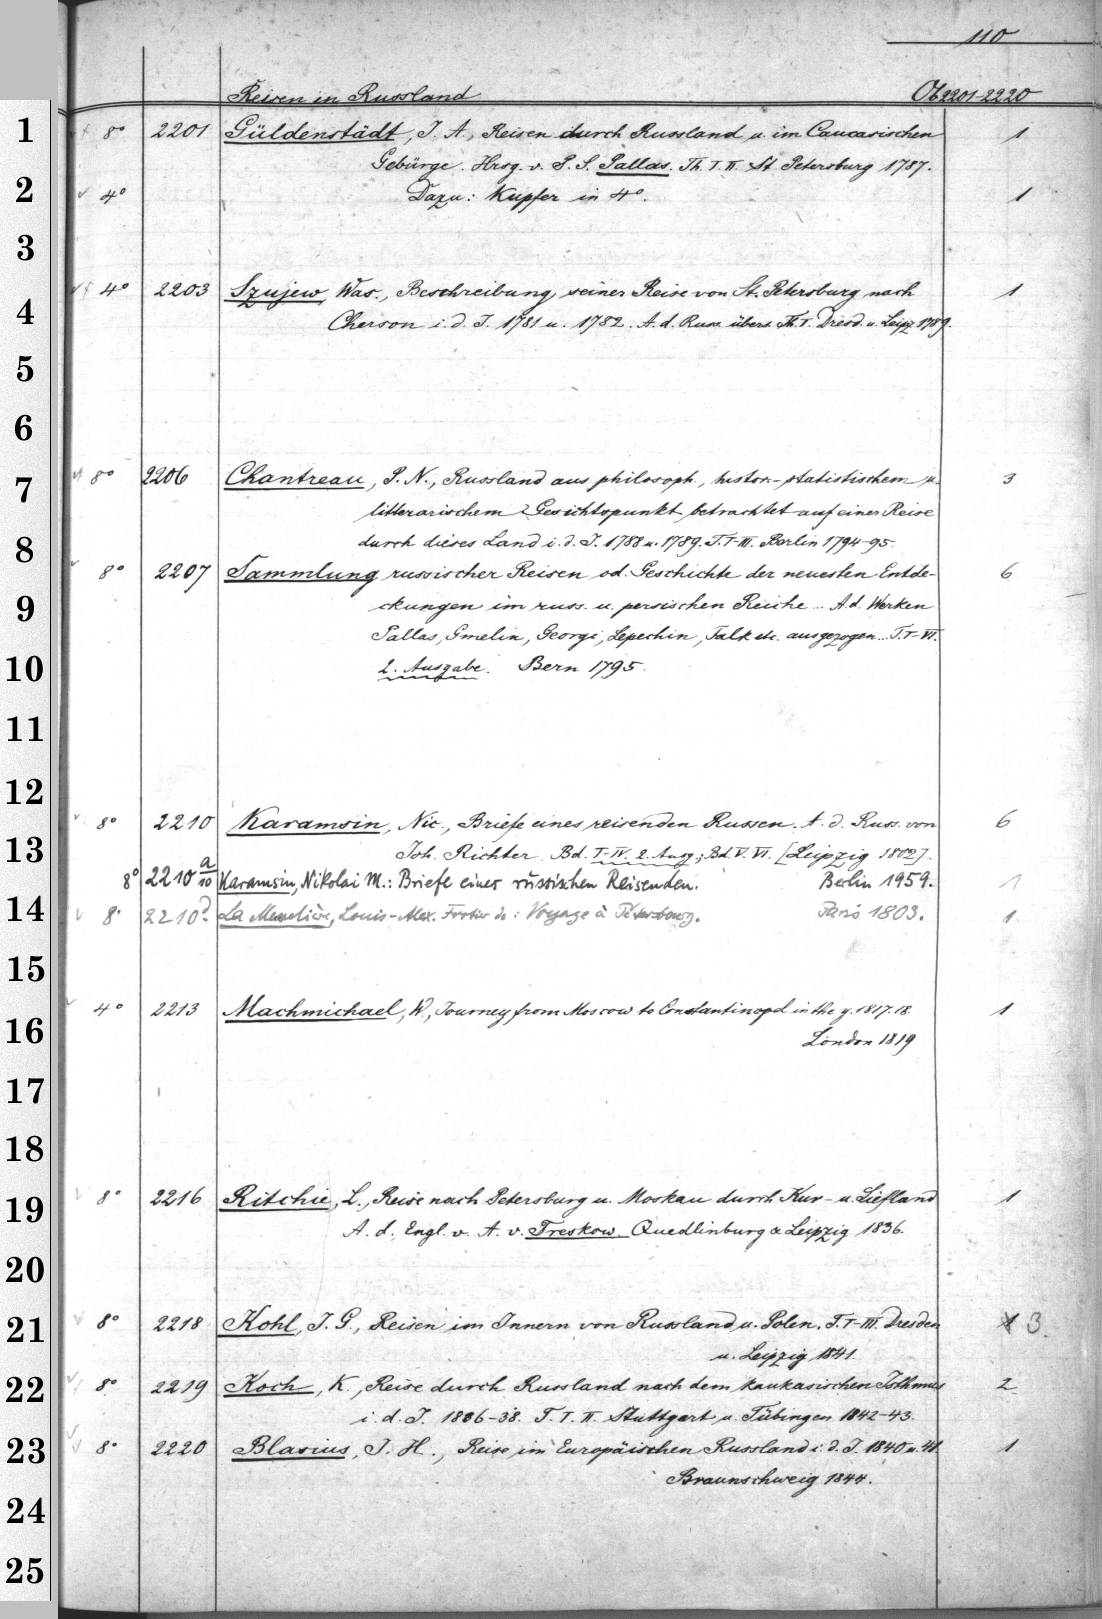 110
Reisen in Russland Ob 2201-2220
1 8° 2201 Güldenstädt, J. A., Reisen durch Russland u. im Caucasischen 1
Gebürge. Hrsg. v. P. S. Pallas. Th. I. II. St. Petersburg 1787.
2 4° Dazu: Kupfer in 4°. 1
3
4° 2203 Szujew, Was., Beschreibung seiner Reise von St. Petersburg nach 1
4 Cherson i. d. J. 1781 u. 1782. A. d. Russ. übers. Th. I. Dresd. u. Leipz. 1789.
5
6
7 8° 2206 Chantreau, P. N., Russland aus philosoph., histor.-statistischem u. 3
litterarischem Gesichtspunkt betrachtet auf einer Reise
8 durch dieses Land i. d. J. 1788 u. 1789. T. I-III. Berlin 1794-95.
8° 2207 Sammlung russischer Reisen od. Geschichte der neuesten Entde- 6
9 ckungen im russ. u. persischen Reiche... A. d. Werken
Pallas, Gmelin, Georgi, Lepechin, Falk etc. ausgezogen... T. I-VI.
10 2. Ausgabe. Bern 1795.
11
12
8° 2210 Karamsin, Nic., Briefe eines reisenden Russen. A. d. Russ. von 6
13 Joh. Richter. Bd. I-IV. 2. Ausg.; Bd. V. VI. [Leipzig 1802].
8° 2210 a/10 Karamsin, Nikolai M.: Briefe eines russischen Reisenden. Berlin 1959. 1
14 8° 2210 La Messelière, Louis-Alex. Frotier de: Voyage à Pétersbourg. Paris 1803. 1
15
4° 2213 Machmichael, W., Journey from Moscow to Constantinopel in the y. 1817.18. 1
16 London 1819
17
18
19 8° 2216 Ritchie, L., Reise nach Petersburg u. Moskau durch Kur- u. Liefland 1
A. d. Engl. v. A. v. Treskow. Quedlinburg & Leipzig 1836.
20
21 8° 2218 Kohl, J. G., Reisen im Innern von Russland u. Polen. T. I-III. Dresden 3.
u. Leipzig 1841.
22 8° 2219 Koch, K., Reise durch Russland nach dem kaukasischen Isthmus 2
i. d. J. 1836-38. T. I. II. Stuttgart u. Tübingen 1842-43.
23 8° 2220 Blasius, J. H., Reise im Europäischen Russland i. d. J. 1840 u. 41. 1
Braunschweig 1844.
24
25